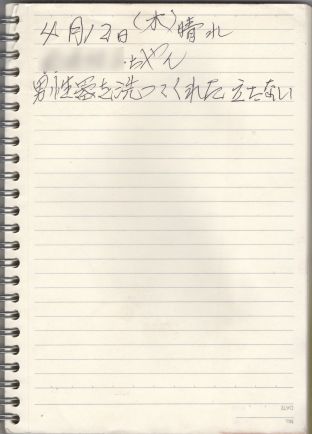 4月12日(木)晴れ
ちゃん
男性器を洗ってくれた立たない
DATE
NO.